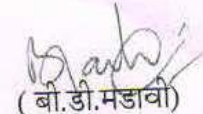 ( बी.डी.मंडावी)